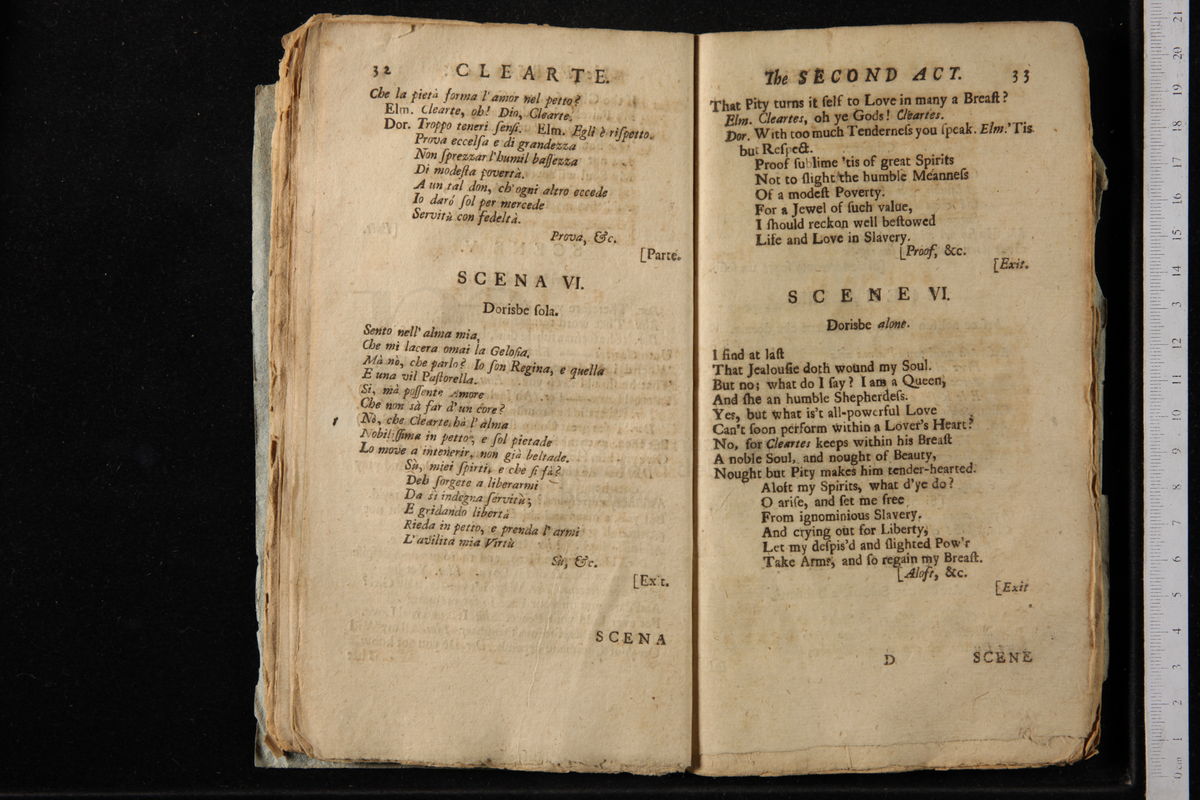 32 CLEARTE.
Che la pietà forma l'amor nel petto?
Elm. Clearte, oh! Dio, Clearte.
Dor. Troppo teneri ſenſi. Elm. Egli è riſpetto.
Prova eccelſa e di grandezza
Non ſprezzar l'humil baſſezza
Di modeſta povertà.
A un tal don, ch'ogni altro eccede
Io darò ſol per mercede
Servitù con fedeltà.
Prova, &c.
[Parte.
SCENA VI.
Dorisbe ſola.
Sento nell' alma mia,
Che mi lacera omai la Geloſia.
Mà nò, che parlo? Io ſon Regina, e quella
E una vil Paſtorella.
Si, mà poſſente Amore
Che non sà far d'un core?
Nò, che Clearte hà l'alma
Nobiliſſima in petto, e ſol pietade
Lo move a intenerir, non già beltade.
Sù, miei ſpirti, e che ſi fà?
Deh ſorgete a liberarmi
Da sì indegna ſervitù;
E gridando libertà
Rieda in petto, e prenda l'armi
L'avilita mia Virtù
Sù, &c.
[Exit.
SCENA
The SECOND ACT. 33
That Pity turns it ſelf to Love in many a Breaſt?
Elm. Cleartes, oh ye Gods! Cleartes.
Dor. With too much Tenderneſs you ſpeak. Elm. 'Tis
but Reſpect.
Proof ſublime 'tis of great Spirits
Not to ſlight the humble Meanneſs
Of a modeſt Poverty.
For a Jewel of ſuch value,
I ſhould reckon well beſtowed
Life and Love in Slavery.
[Proof, &c.
[Exit.
SCENE VI.
Dorisbe alone.
I find at laſt
That Jealouſie doth wound my Soul.
But no; what do I ſay? I am a Queen,
And ſhe an humble Shepherdeſs.
Yes, but what is't all-powerful Love
Can't ſoon perform within a Lover's Heart?
No, for Cleartes keeps within his Breaſt
A noble Soul, and nought of Beauty,
Nought but Pity makes him tender-hearted.
Aloft my Spirits, what d'ye do?
O ariſe, and ſet me free
From ignominious Slavery.
And crying out for Liberty,
Let my deſpis'd and ſlighted Pow'r
Take Arms, and ſo regain my Breaſt.
[Aloft, &c.
[Exit
D SCENE
0 cm 1 2 3 4 5 6 7 8 9 10 11 12 13 14 15 16 17 18 19 20 21